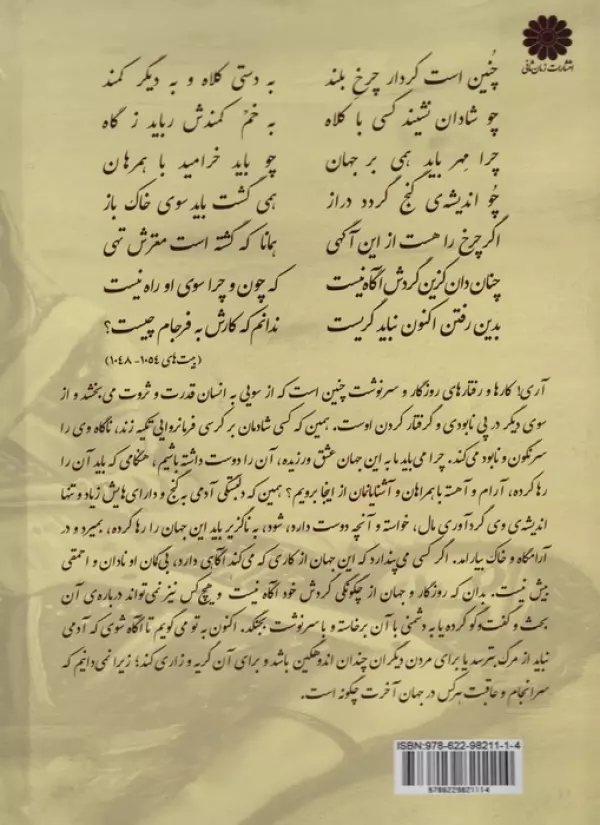 انتشارات زمان شانی
چُنین است کردار چرخِ بلند به دستی کلاه و به دیگر کمند
چو شادان نشیند کسی با کلاه به خمّ کمندش رباید ز گاه
چرا مِهر باید همی بر جهان چو باید خرامید با همرهان
چُو اندیشه‌ی گنج گردد دراز همی گشت باید سوی خاک باز
اگر چرخ را هست از این آگهی همانا که گشته است مغزش تهی
چنان دان کزین گردش آگاه نیست که چون و چرا سوی او راه نیست
بدین رفتن اکنون نباید گریست ندانم که کارش به فرجام چیست؟
(بیت‌های ۱۰۵۴- ۱۰۴۸)
آری! کارها و رفتارهای روزگار و سرنوشت چنین است که از سویی به انسان قدرت و ثروت می‌بخشد و از
سوی دیگر در پی نابودی و گرفتار کردن اوست. همین که کسی شادمان بر کرسی فرمانروایی تکیه زند، ناگاه وی را
سرنگون و نابود می‌کند. چرا می‌باید ما به این جهان عشق ورزیده، آن را دوست داشته باشیم، هنگامی که باید آن را
رها کرده، آرام و آهسته با همراهان و آشنایانمان از اینجا برویم؟ همین که دلبستگی آدمی به گنج و دارای‌هایش زیاد و تنها
اندیشه‌ی وی گردآوری مال، خواسته و آنچه دوست دارد، شود، به ناگزیر باید این جهان را رها کرده، بمیرد و در
آرامگاه و خاک بیارامد. اگر کسی می‌پندارد که این جهان از کاری که می‌کند آگاهی دارد، بی‌گمان او نادان و احمقی
بیش نیست. بدان که روزگار و جهان از چگونگی گردش خود آگاه نیست و هیچ کس نیز نمی‌تواند درباره‌ی آن
بحث و گفت‌وگو کرده یا به دشمنی با آن برخاسته و با سرنوشت بجنگد. اکنون به تو می‌گویم تا آگاه شوی که آدمی
نباید از مرگ بترسد یا برای مردن دیگران چندان اندوهگین باشد و برای آن گریه و زاری کند؛ زیرا نمی‌دانیم که
سرانجام و عاقبت هرکس در جهان آخرت چگونه است.
ISBN:978-622-98211-1-4
9786229821114